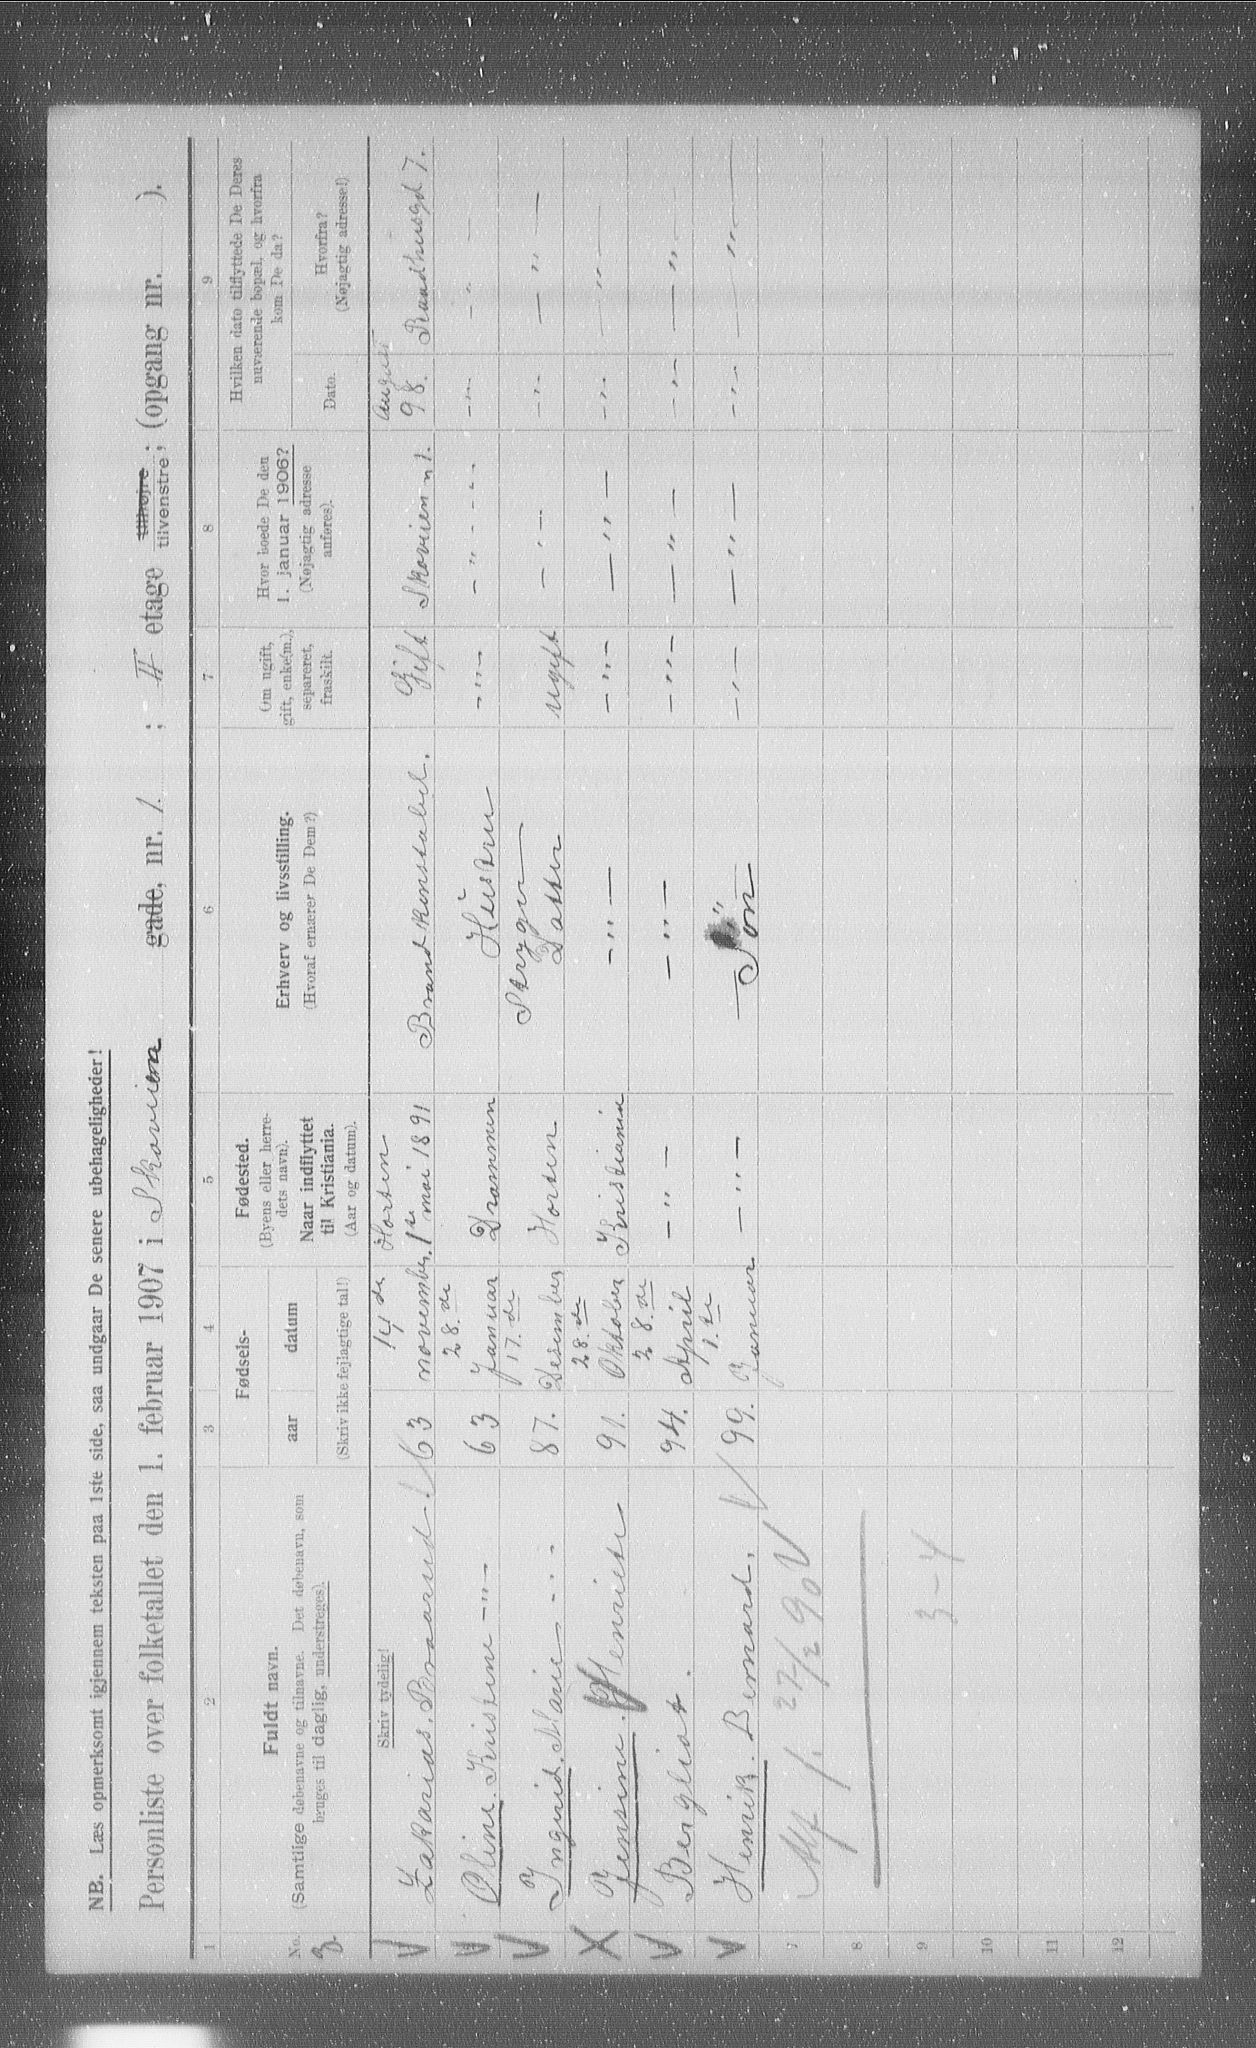 NB. Læs opmerksomt igjennem teksten paa 1ste side, saa undgaar De senere ubehageligheder!
Personliste over folketallet den 1. februar 1907 i Skoveien gade, nr. 1. ; II etage tilhøjre tilvenstre; (opgang nr. ).
1 2 3 4 5 6 7 8 9
No. 3.
Fuldt navn.
(Samtlige døbenavne og tilnavne. Det døbenavn, som
bruges til daglig, understreges).
Fødsels-
aar datum
(Skriv ikke fejlagtige tal!)
Fødested.
(Byens eller herre-
dets navn).
Naar indflyttet
til Kristiania.
(Aar og datum).
Erhverv og livsstilling.
(Hvoraf ernærer De Dem?)
Om ugift,
gift, enke(m.),
separeret,
fraskilt.
Hvor boede De den
1. januar 1906?
(Nøjagtig adresse
anføres).
Hvilken dato tilflyttede De Deres
nuværende bopæl, og hvorfra
kom De da?
Dato.
Hvorfra?
(Nøjagtig adresse!)
Skriv tydelig!
V Zakarias. Braarud. 63 14 de november. Horten 1ste mai 1891 Brandkonstabel. Gift Skoveien n 1. August 98. Raadhusgd 7.
V Oline. Kristine -"- 63 28. de Januar Drammen Hustru -"- -"- - - - -"- -"-
V Ingrid. Marie - - - 87. 17. de Desember Horten Stryger Datter ugift - " - -"- -"-
X Jensine. Henriete 91. 28. de Oktober Kristiania -"- -"- -"- -"- -"-
V Bergliot. 94. 28. de April -"- -"- -"- -"- -"- -"-
V Henrik. Bernard. 99. 1. te Januar -"- Søn -"- -"- -"- -"-
7
8
9 3-4
10
11
12